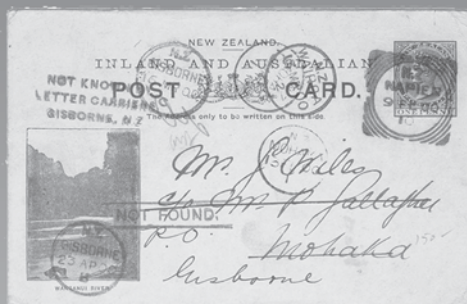 NEW ZEALAND.
INLAND AND AUSTRALIAN
POST CARD.
The Address only to be written on this side.
NOT KNOWN
LETTER CARRIERS
GISBORNE, N.Z
N.Z
GISBORNE
N.Z
NAPIER
ONE PENNY
Mr. J. Wiles
c/o Mr. P. Gallagher
NOT FOUND.
P.O.
Mohaka
Gisborne
N.Z
GISBORNE
23 AP
WANGANUI RIVER